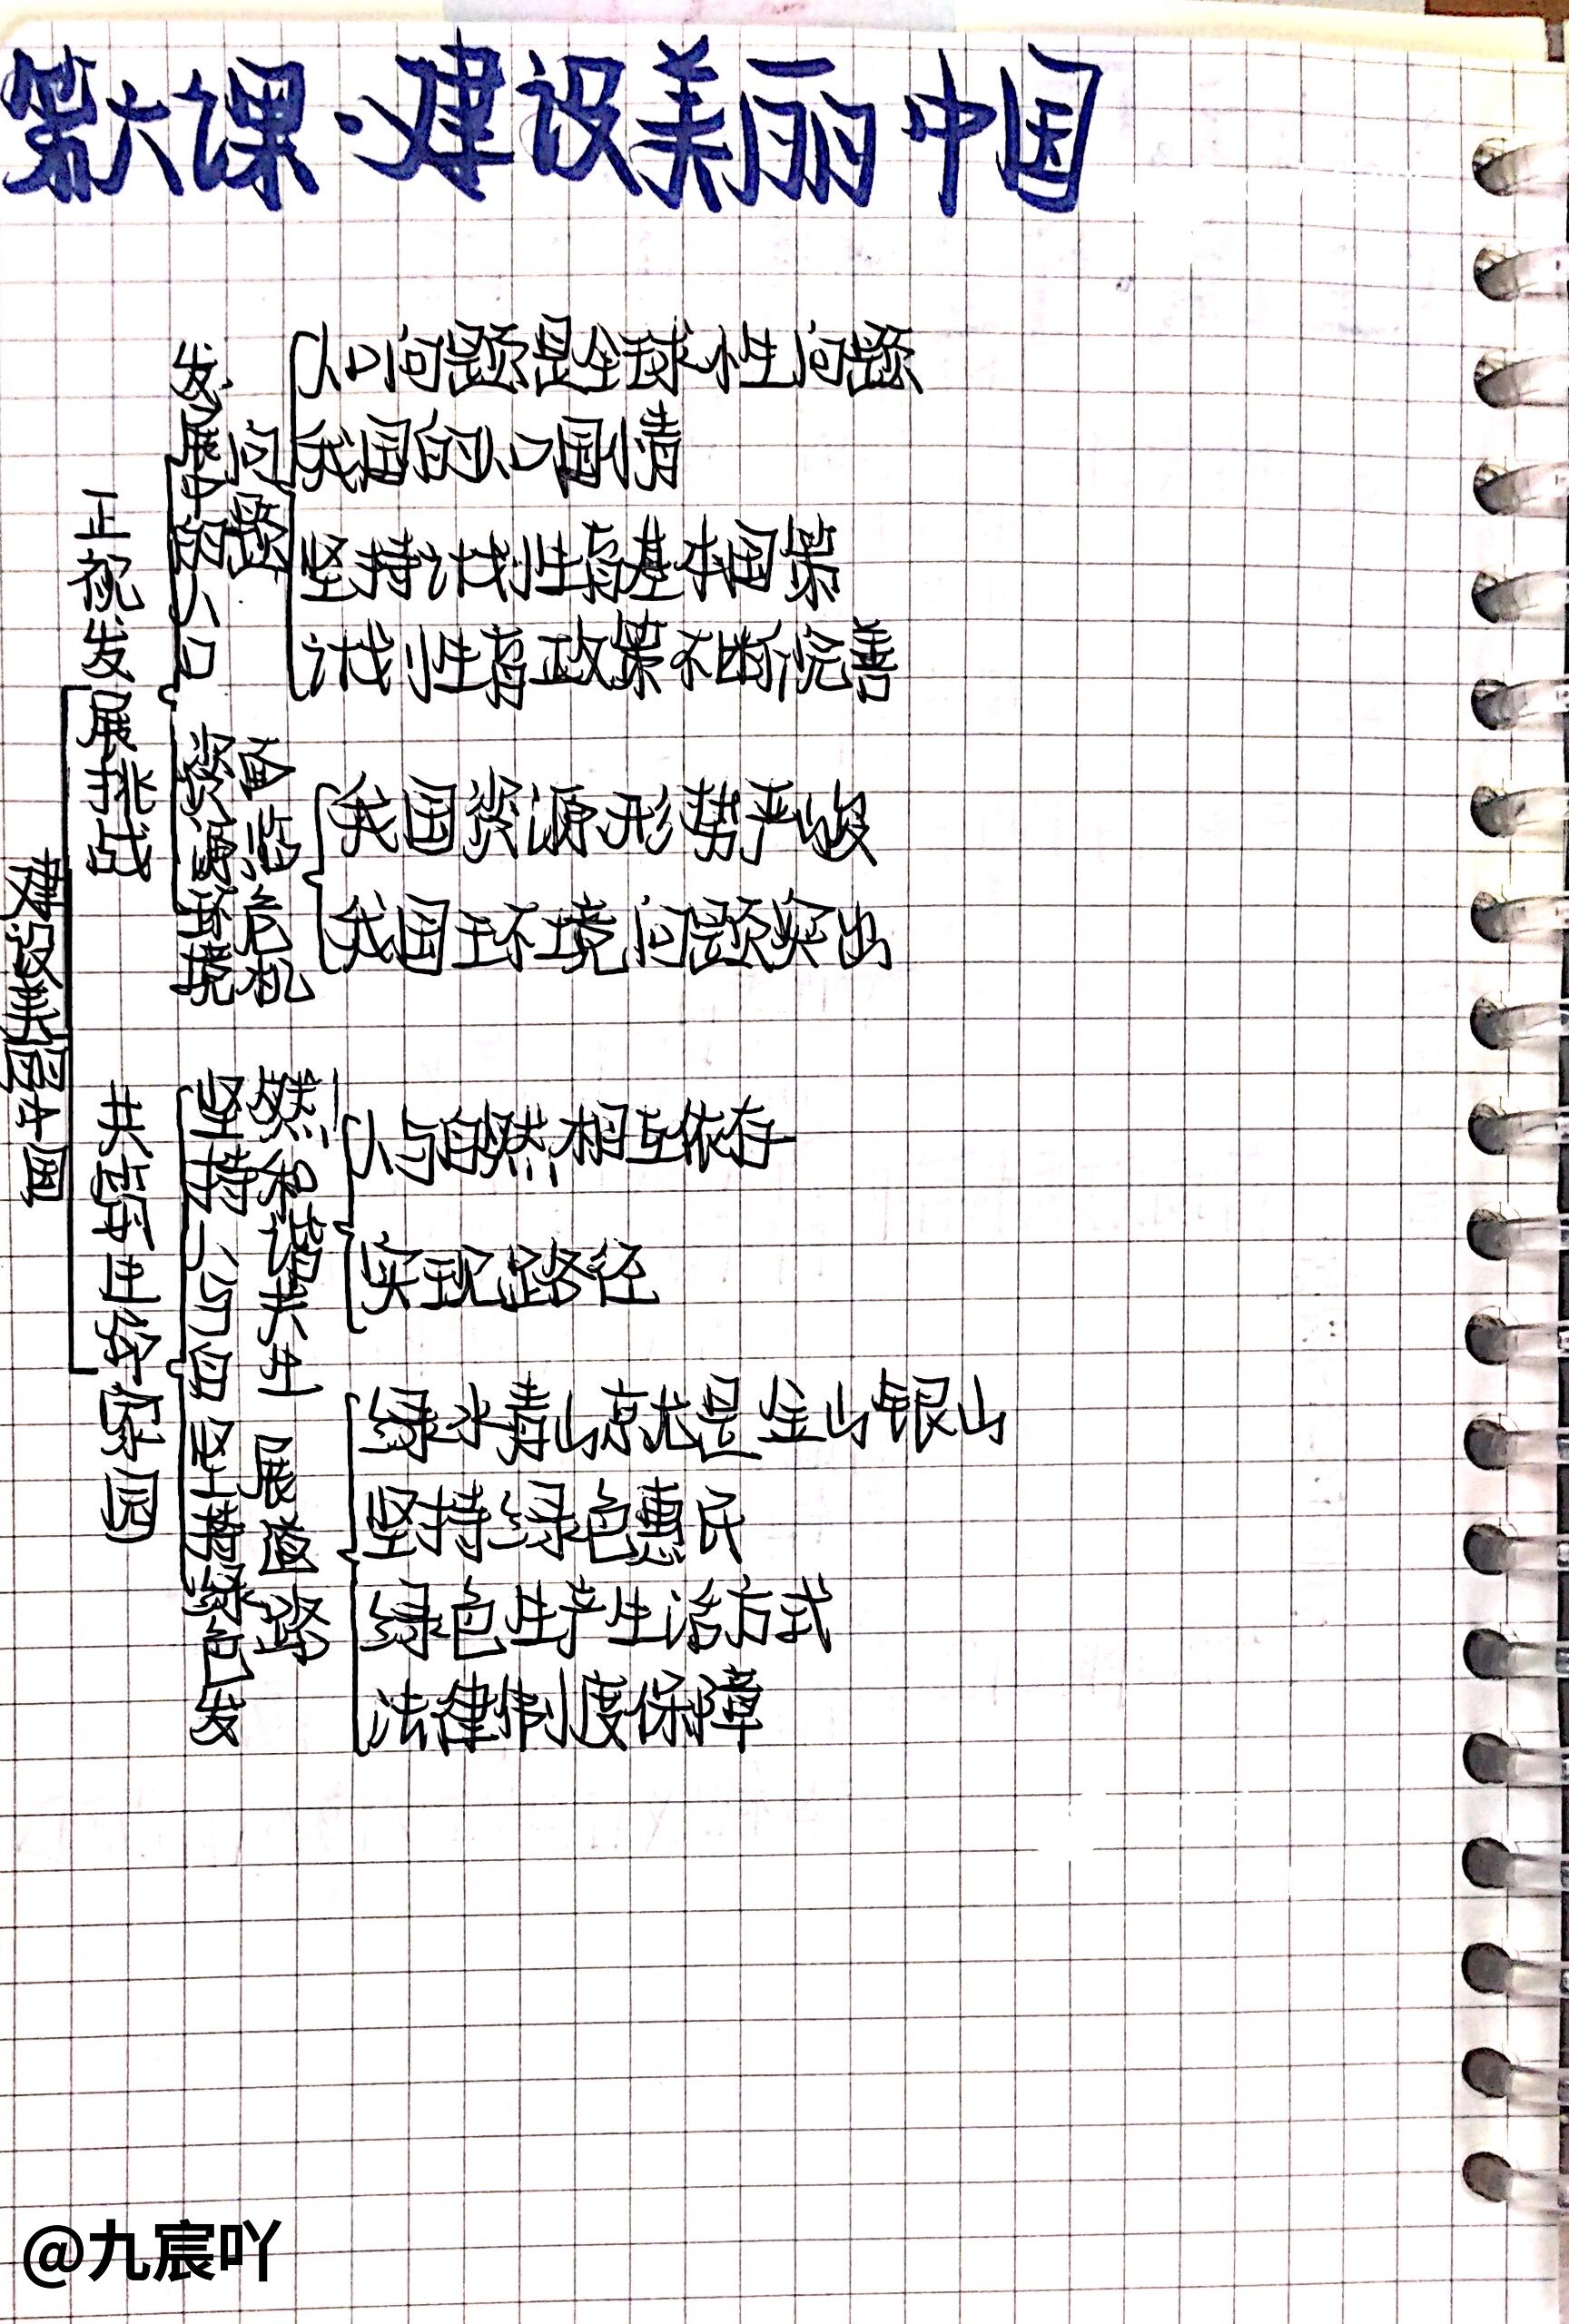 第六课·建设美丽中国
建设美丽中国
正视发展挑战
发展中的人口
问题
人口问题是全球性问题
我国的人口国情
坚持计划生育基本国策
计划生育政策不断完善
资源环境
面临危机
我国资源形势严峻
我国环境问题突出
共筑生命家园
坚持人与自
然和谐共生
人与自然相互依存
实现路径
坚持绿色发
展道路
绿水青山就是金山银山
坚持绿色惠民
绿色生产生活方式
法律制度保障
@九宸吖